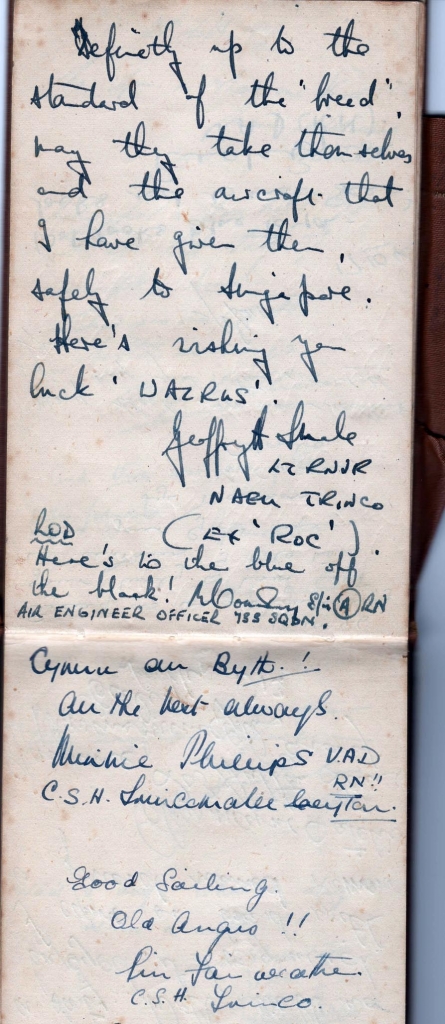 Definetly up to the
standard of the "breed",
may they take themselves
and the aircraft that
I have given them,
safely to Singapore.
Here's wishing you
luck 'WALRUS'.
Geoffrey
LT RNVR
NAEU TRINCO
(EX 'ROC').
Here's to the blue off
the black! (A) RN
AIR ENGINEER OFFICER 733 SQDN.
Cymru am Byth.!
All the best always.
Minnie Phillips V.A.D
RN!!
C.S.H. Trincomalee Ceylon.
Good Sailing.
Old Angus !!
C.S.H. Trinco.